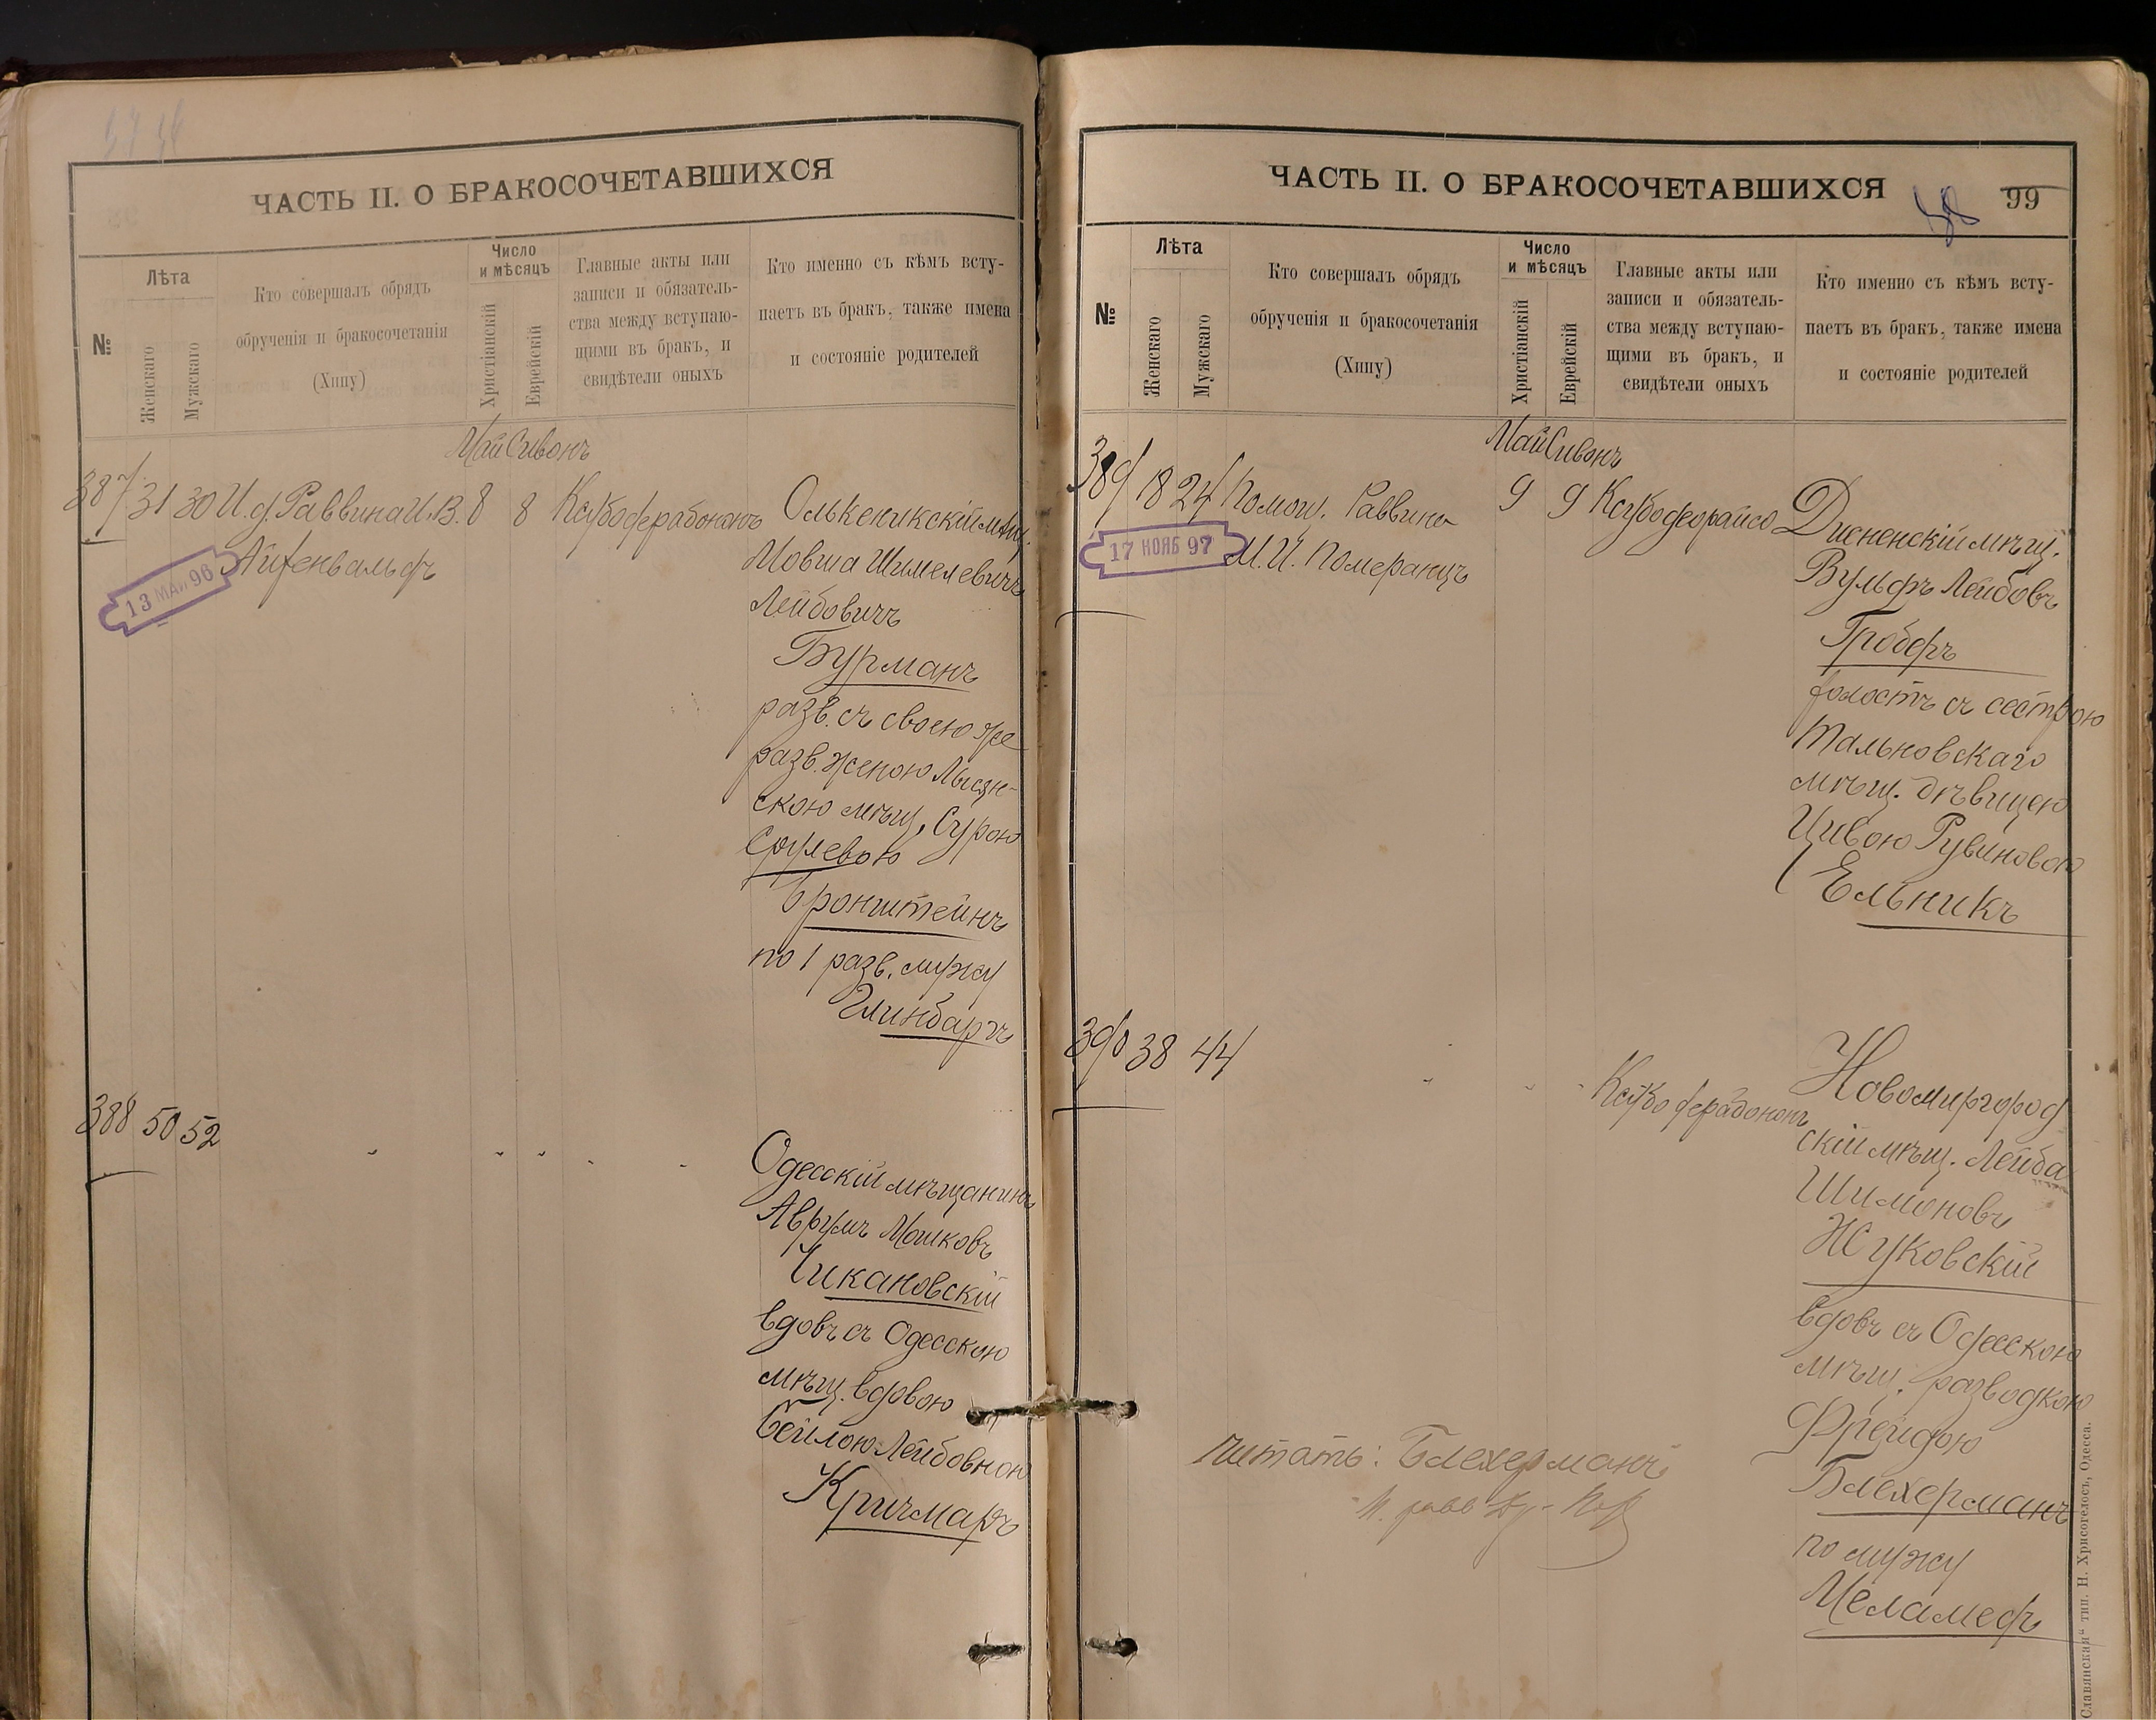 ЧАСТЬ II. О БРАКОСОЧЕТАВШИХСЯ
№
Лѣта
Женскаго
Мужскаго
Кто совершалъ обрядъ
обрученія и бракосочетанія
(Хипу)
Число
и мѣсяцъ
Христіанскій
Еврейскій
Главные акты или
записи и обязатель-
ства между вступаю-
щими въ бракъ, и
свидѣтели оныхъ
Кто именно съ кѣмъ всту-
паетъ въ бракъ, также имена
и состояніе родителей
Май Сивонъ
387 31 30 И.д. Раввина И.В. 8 8 Ксубодерабононъ
Айзенвальдъ
13 МАЙ 96
Олькеникскій мѣщ.
Мовша Шмелевичъ
Лейбовичъ
Бурманъ
разв. съ своею же
разв. женою Лысян-
скою мѣщ. Сурою
Срулевою
Бронштейнъ
по 1 разв. мужу
Глинбаргъ
388 50 52 " " " " "
Одесскій мѣщанинъ
Аврумъ Мошковъ
Чикановскій
вдовъ съ Одесскою
мѣщ. вдовою
Бейлою Лейбовною
Кричмаръ
ЧАСТЬ II. О БРАКОСОЧЕТАВШИХСЯ
99
№
Лѣта
Женскаго
Мужскаго
Кто совершалъ обрядъ
обрученія и бракосочетанія
(Хипу)
Число
и мѣсяцъ
Христіанскій
Еврейскій
Главные акты или
записи и обязатель-
ства между вступаю-
щими въ бракъ, и
свидѣтели оныхъ
Кто именно съ кѣмъ всту-
паетъ въ бракъ, также имена
и состояніе родителей
Май Сивонъ
389 18 24 Помощ. Раввина 9 9 Ксубодеорайсо
М.И. Померанцъ
17 НОЯБ 97
Дисненскій мѣщ.
Вульфъ Лейбовъ
Гробфъ
холостъ съ сестрою
Тальновскаго
мѣщ. дѣвицею
Цивою Рувиновою
Ельникъ
390 38 44 " " " Ксубо дерабононъ
Новомиргород
скій мѣщ. Лейба
Шимоновъ
Жуковскій
вдовъ съ Одесскою
мѣщ. разводкою
Фрейдою
Блехерманъ
по мужу
Меламедъ
читать: Блехерманъ
„Славянская“ тип. Н. Хрисогелосъ, Одесса.